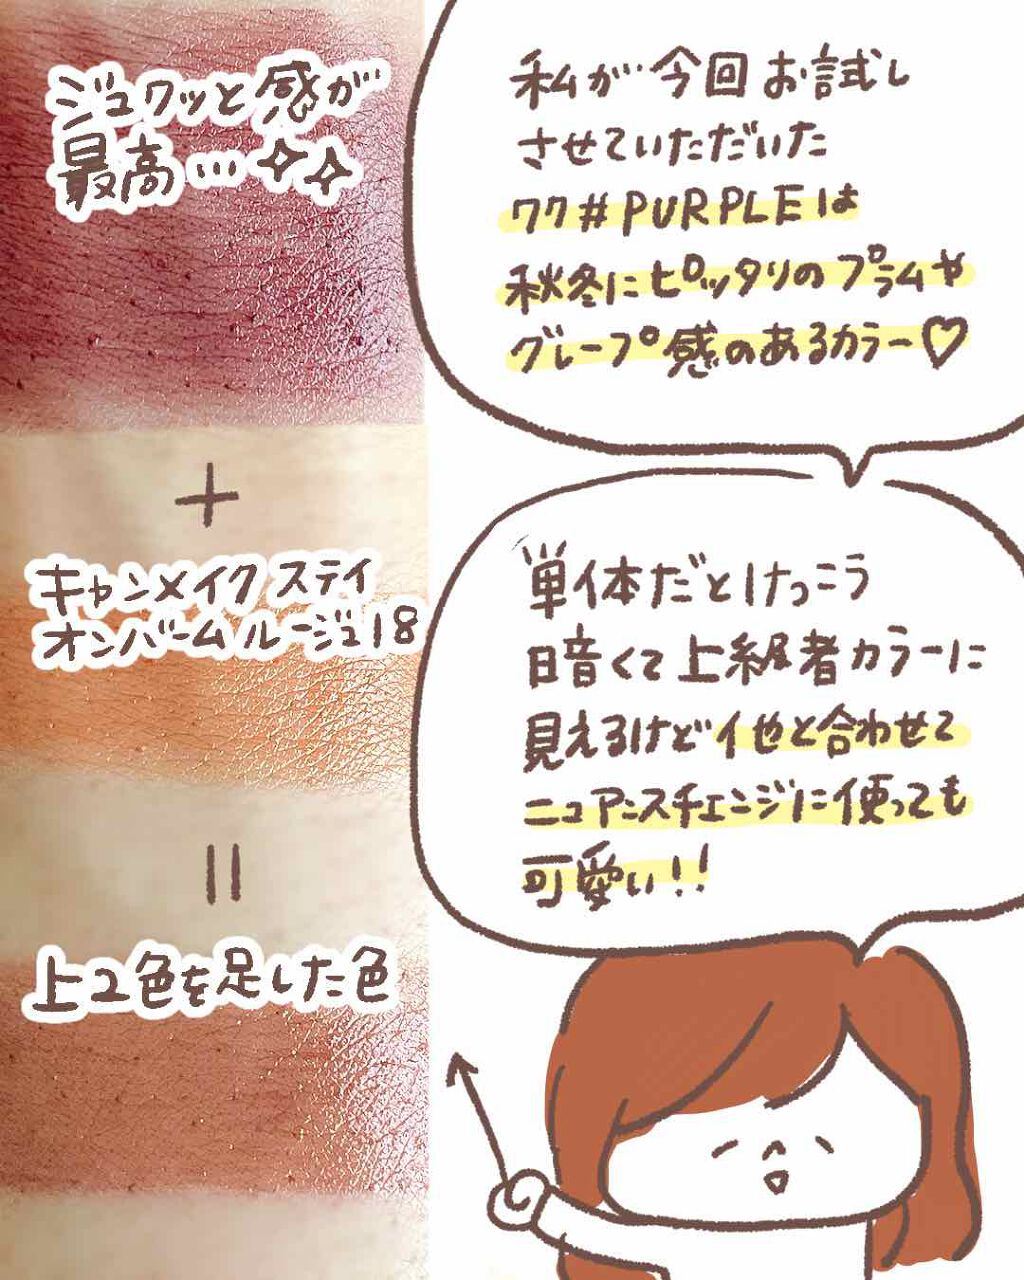 ジュワッと感が
最高…
+
キャンメイク ステイ
オンバームルージュ18
=
上2色を足した色
私が今回お試し
させていただいた
77#PURPLEは
秋冬にピッタリのプラムや
グレープ感のあるカラー♡
単体だとけっこう
暗くて上級者カラーに
見えるけど他と合わせて
ニュアンスチェンジに使っても
可愛い!!